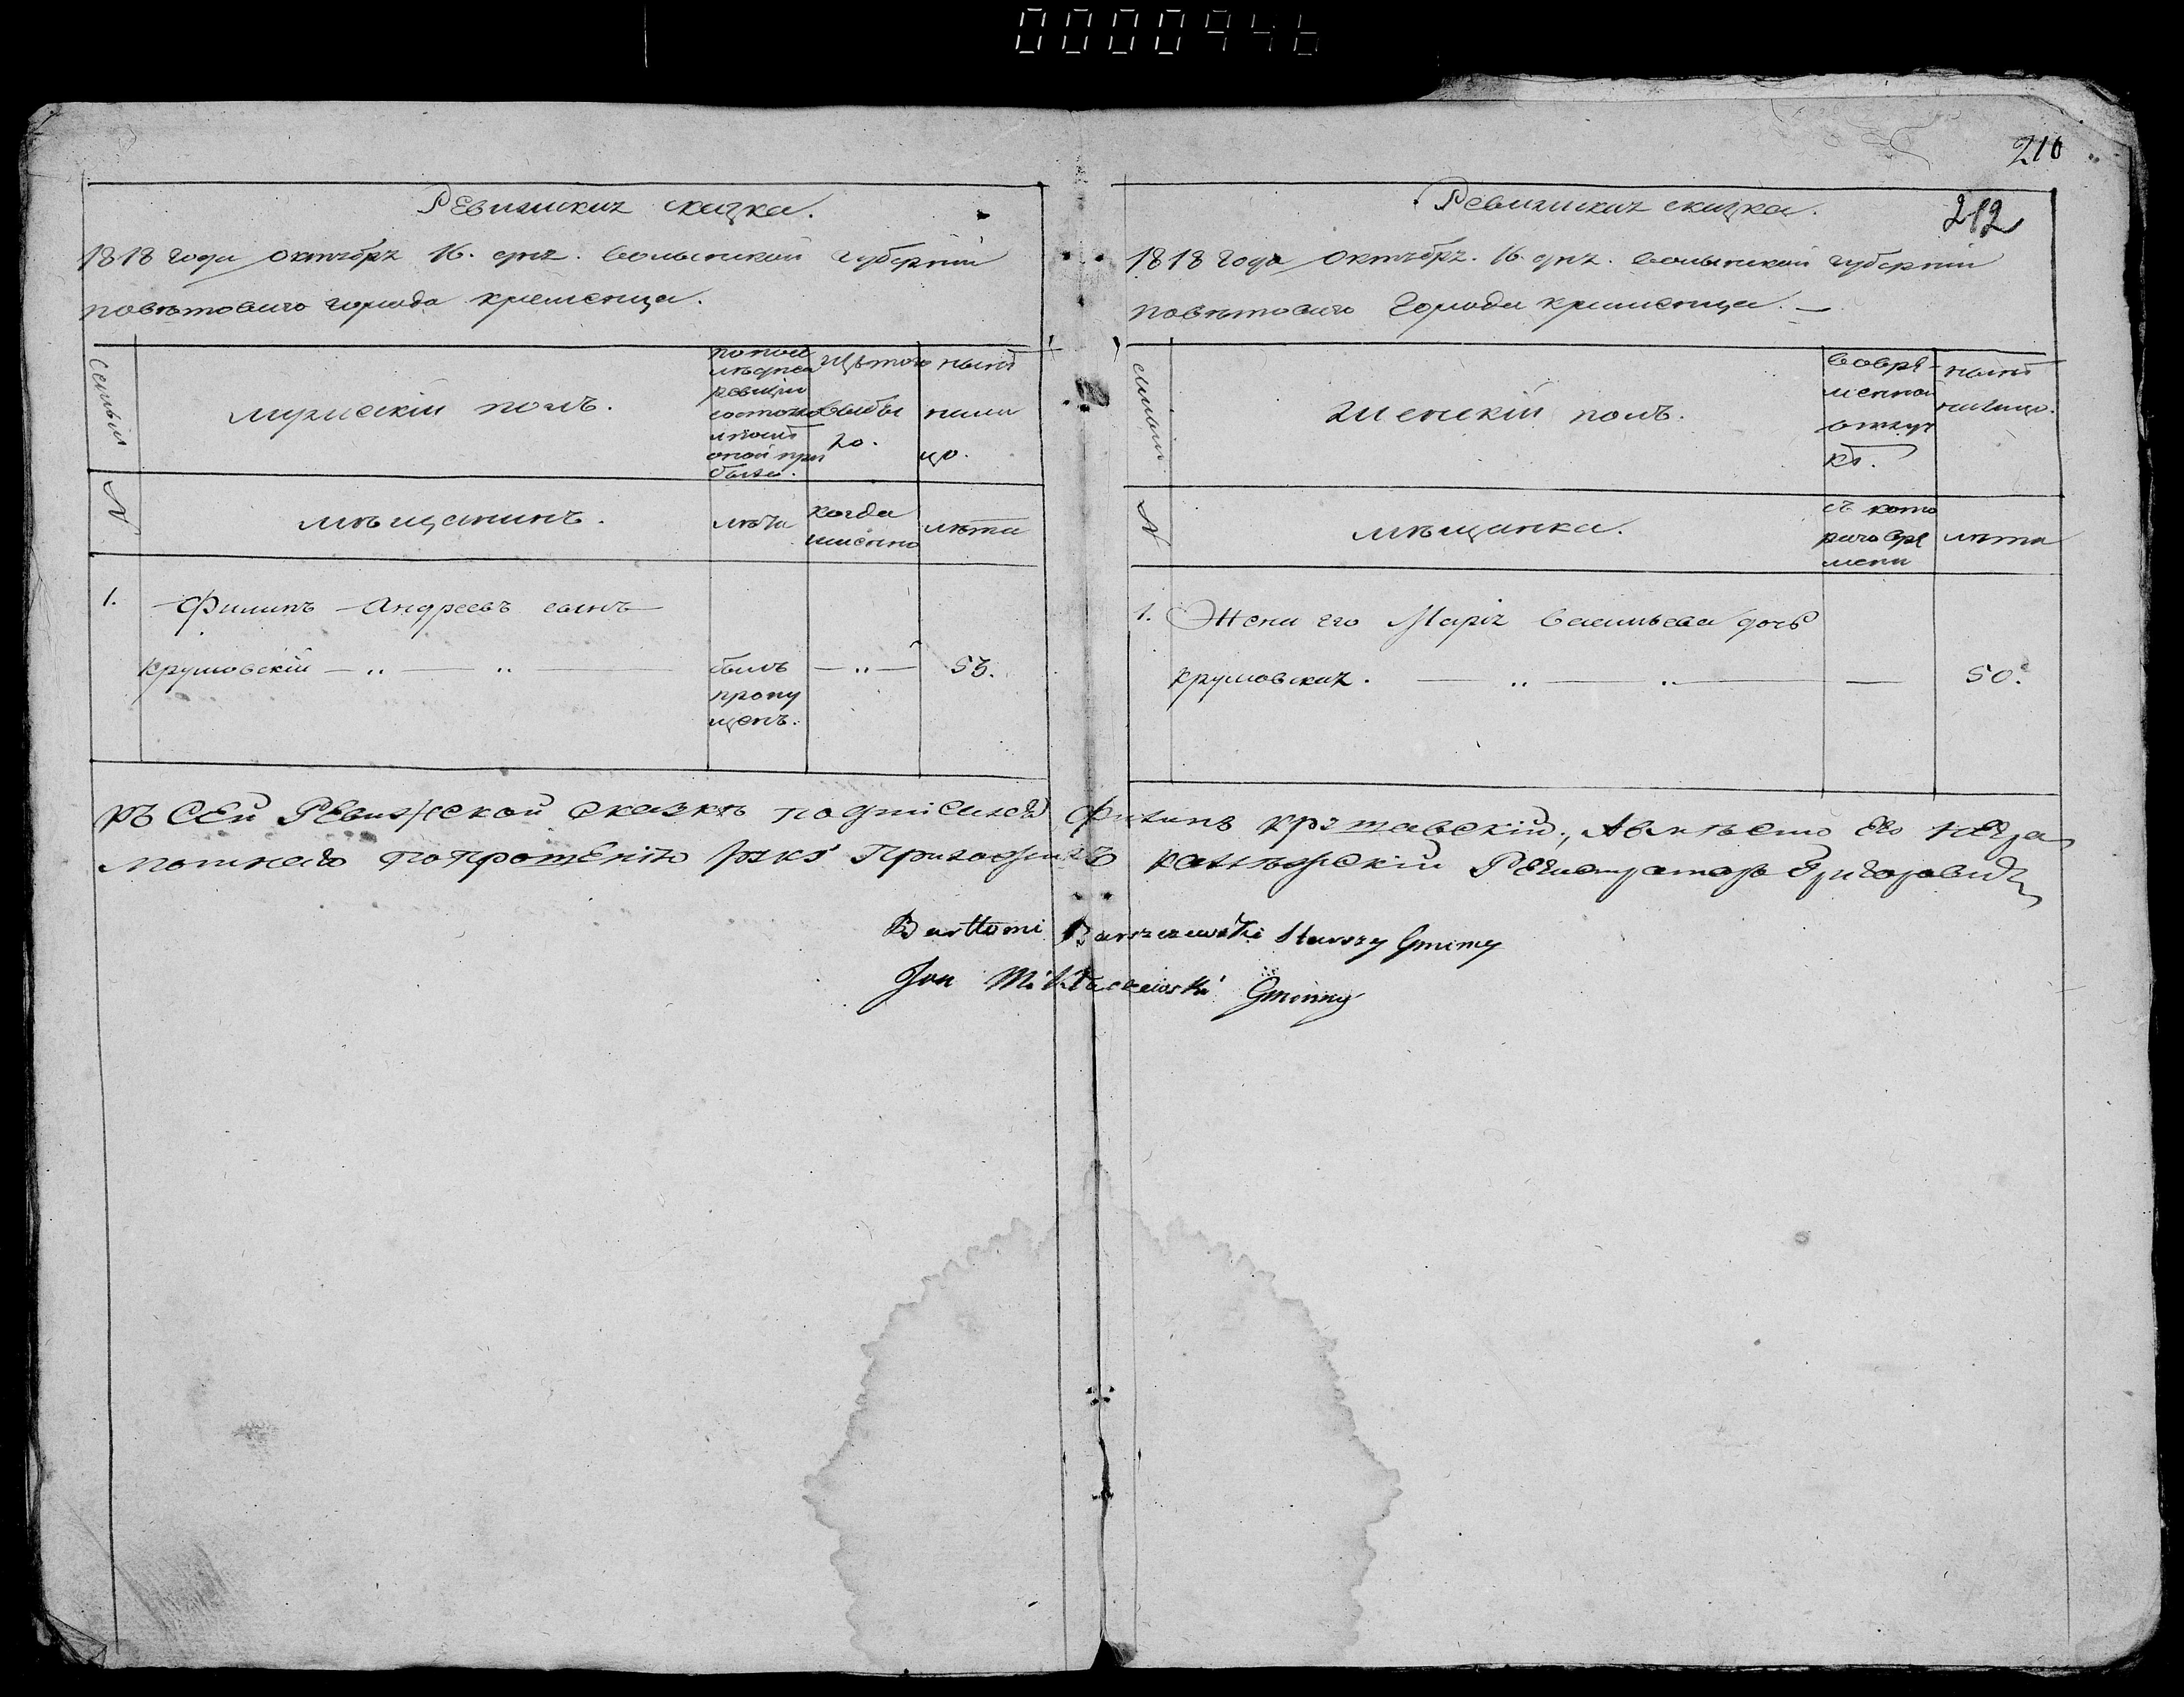 0000946
210
Ревизская сказка.
1818 года октября 16. дня. волынской губернии
поветоваго города кременца.
семьи
мужескій полъ.
по пос
ледней
ревизіи
состояло
и после
оной при
было.
изъ того
выбы
ло.
ныне
нали
цо.
N
мещанинъ.
лета
когда
именно
лета
1. Филипъ Андреевъ сынъ
Крушовскій
былъ
пропу
щенъ.
53.
212
Ревизская сказка.
1818 года октября. 16. дня. волынской губерніи
поветоваго города кременца.
семьи
Женскій полъ.
вовре
менной
отлуч
ке.
ныне
налицо.
N
мещанка.
съ кото
раго вре
мени
лета
1. Жена его Марія Васильева дочь
Крушовская.
50.
Къ Сей Ревизской Сказкѣ подписался Филипъ Крушавскій, Авмѣсто его негра
мотнаго попрошенію руку Приложилъ канцелярскій Регистраторъ Григоровичъ
Barttomi Barszczewski Starszy Gminny
Jan Gminny